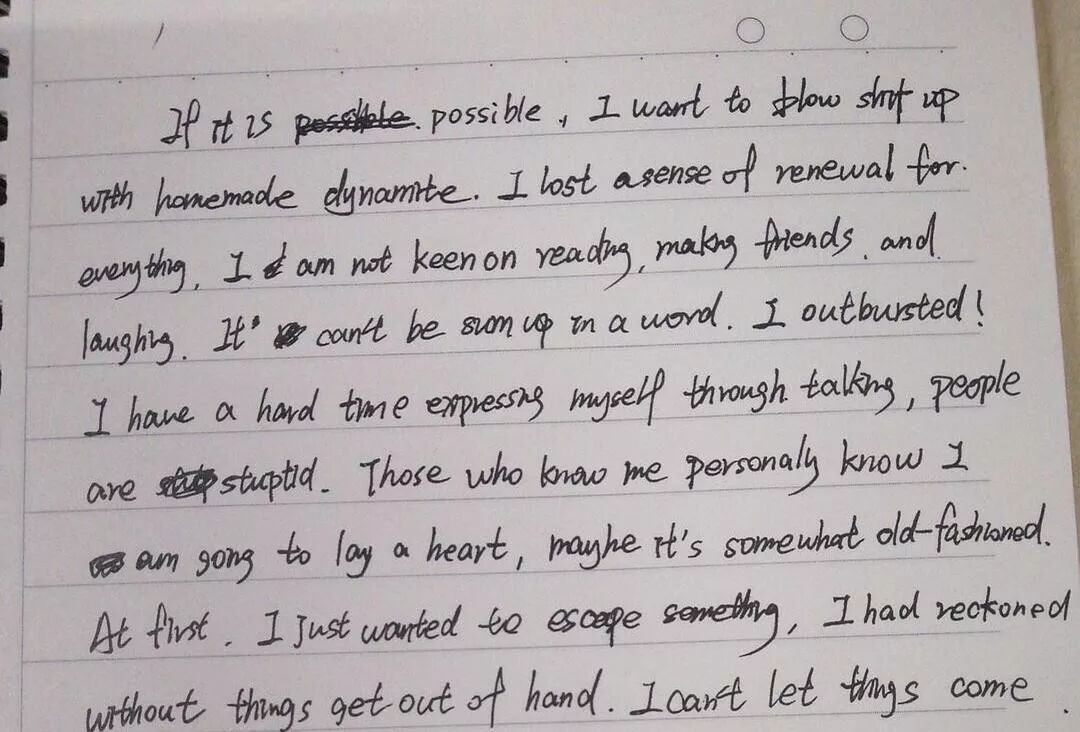 If it is possible. possible, I want to blow shit up
with homemade dynamite. I lost a sense of renewal for.
everything, I am not keen on reading, making friends, and
laughing. It' can't be sum up in a word. I outbursted!
I have a hard time expressing myself through talking, people
are stuptid. Those who know me personaly know I
am going to lay a heart, maybe it's somewhat old-fashioned.
At first, I just wanted to escape something, I had reckoned
without things get out of hand. I can't let things come